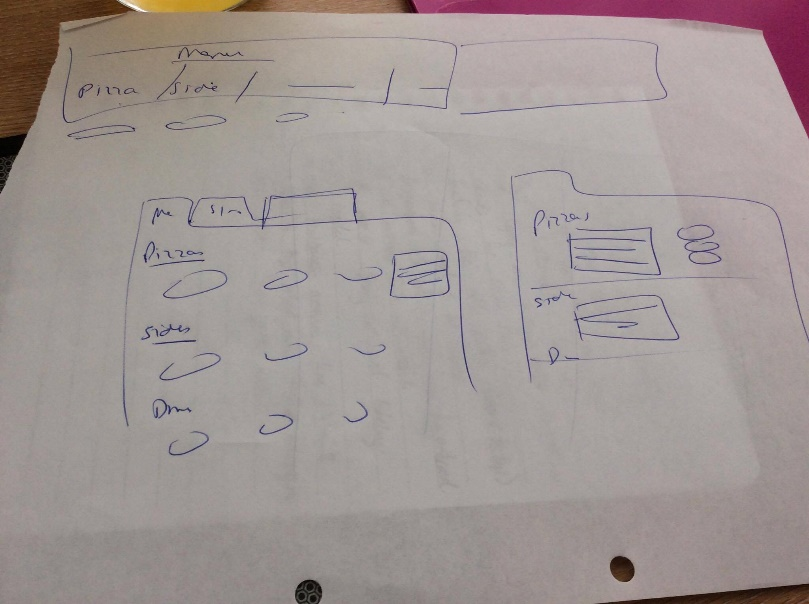 Menu
Pizza / Side /
Me
Pizzas
Sides
Pizzas
Side
D